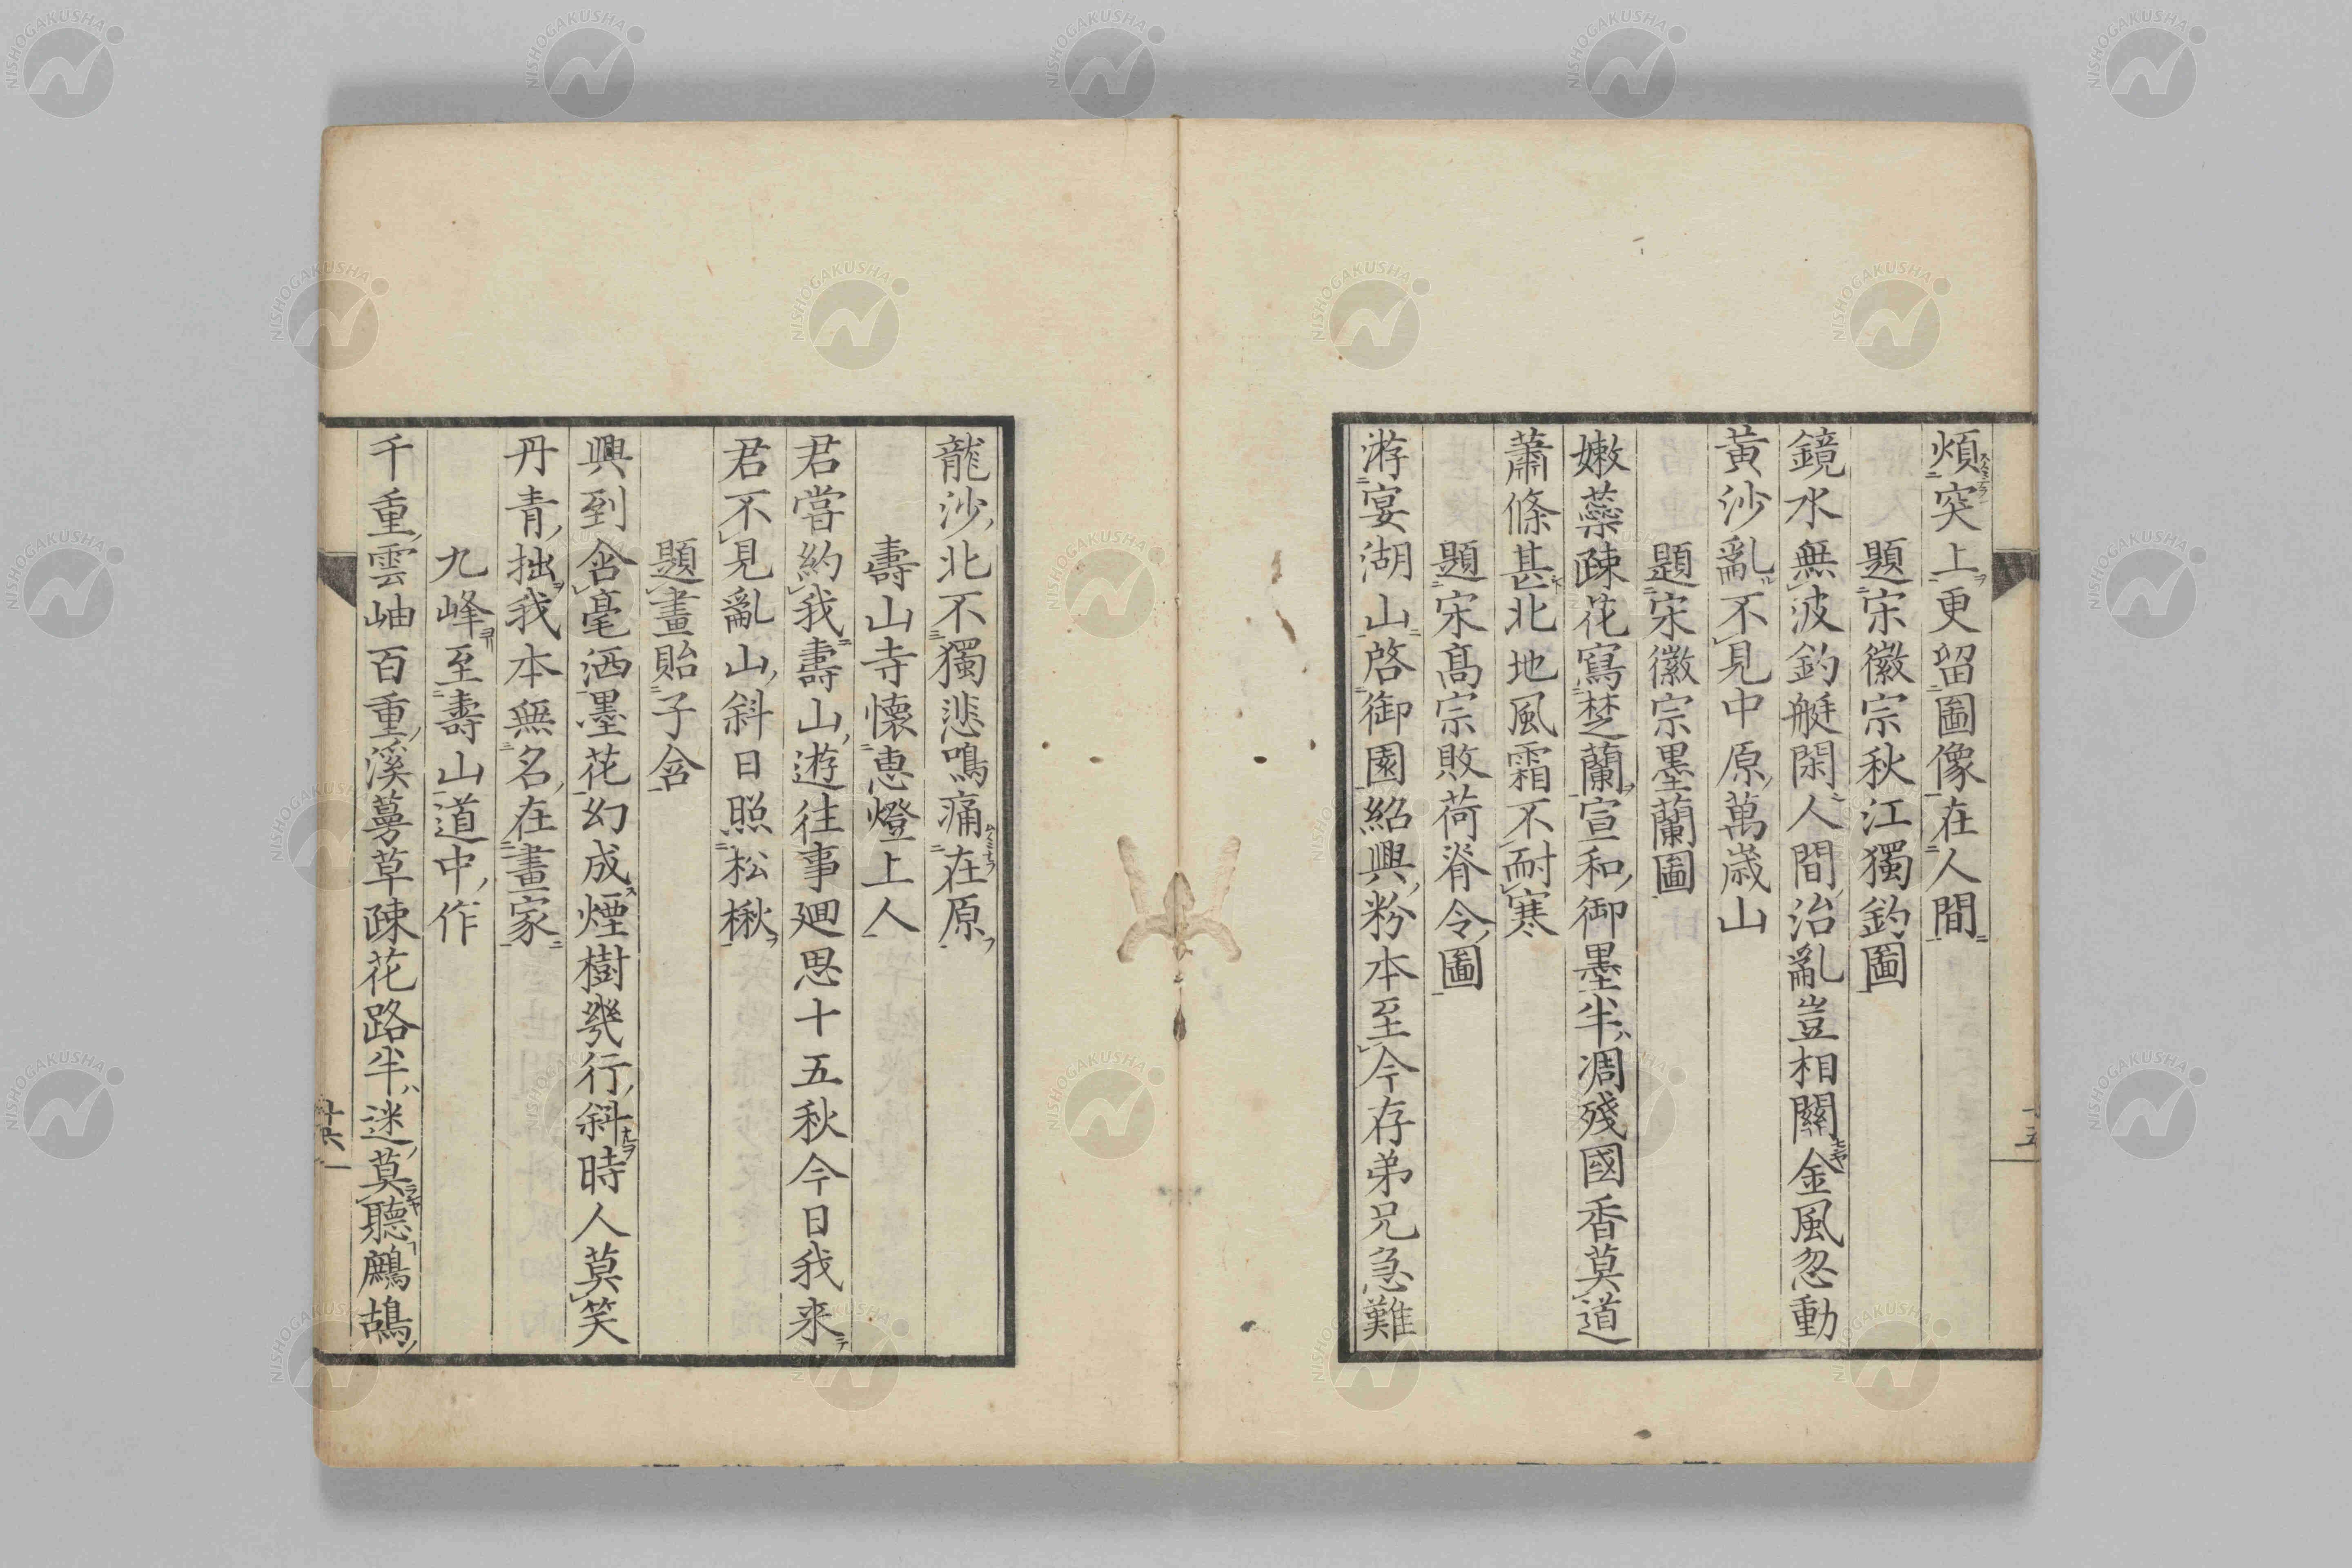 頰突上更留圖像在人間
題宋徽宗秋江獨釣圖
鏡水無波釣艇閑人間治亂豈相關金風忽動
黃沙亂不見中原萬歳山
題宋徽宗墨蘭圖
嫩蘂疎花寫楚蘭宣和御墨半凋殘國香莫道
蕭條甚北地風霜不耐寒
題宋髙宗敗荷脊令圖
游宴湖山啓御園紹興粉本至今存弟兄急難
龍沙北不獨悲鳴痛在原
壽山寺懷恵燈上人
君嘗約我壽山遊往事廻思十五秋今日我来
君不見亂山斜日照松楸
題畫貽子含
興到含毫洒墨花幻成煙樹幾行斜時人莫笑
丹青拙我本無名在畫家
九峰至壽山道中作
千重雲岫百重溪蔓草疎花路半迷莫聽鷓鴣
十六
NISHOGAKUSHA